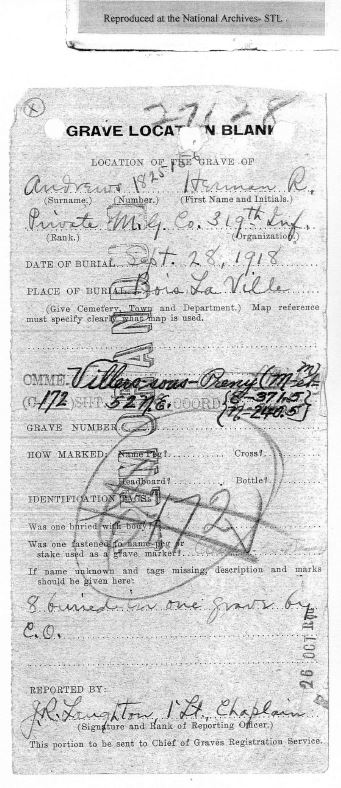 Reproduced at the National Archives- STL
27128
GRAVE LOCATION BLANK
LOCATION OF THE GRAVE OF
Andrews 1825 Herman R.
(Surname.) (Number.) (First Name and Initials.)
Private M.G. Co. 319th Inf.
(Rank.) (Organization.)
DATE OF BURIAL Sept. 28, 1918
PLACE OF BURIAL Bois La Ville
(Give Cemetery, Town and Department.) Map reference
must specify clearly what map is used.
COMME. Villers-sous-Preny (M-et-M)
(G-172) SHT. 52 N.E. COORD {E-371.5}
{N-240.5}
GRAVE NUMBER
HOW MARKED: Name Peg? Cross?
Headboard? Bottle?
IDENTIFICATION TAGS:
172
Was one buried with body?
Was one fastened to name-peg or
stake used as a grave marker?
If name unknown and tags missing, description and marks
should be given here:
8 buried in one grave by
C.O.
26 OCT
REPORTED BY:
J.R. Laughton, 1 Lt., Chaplain
(Signature and Rank of Reporting Officer.)
This portion to be sent to Chief of Graves Registration Service.